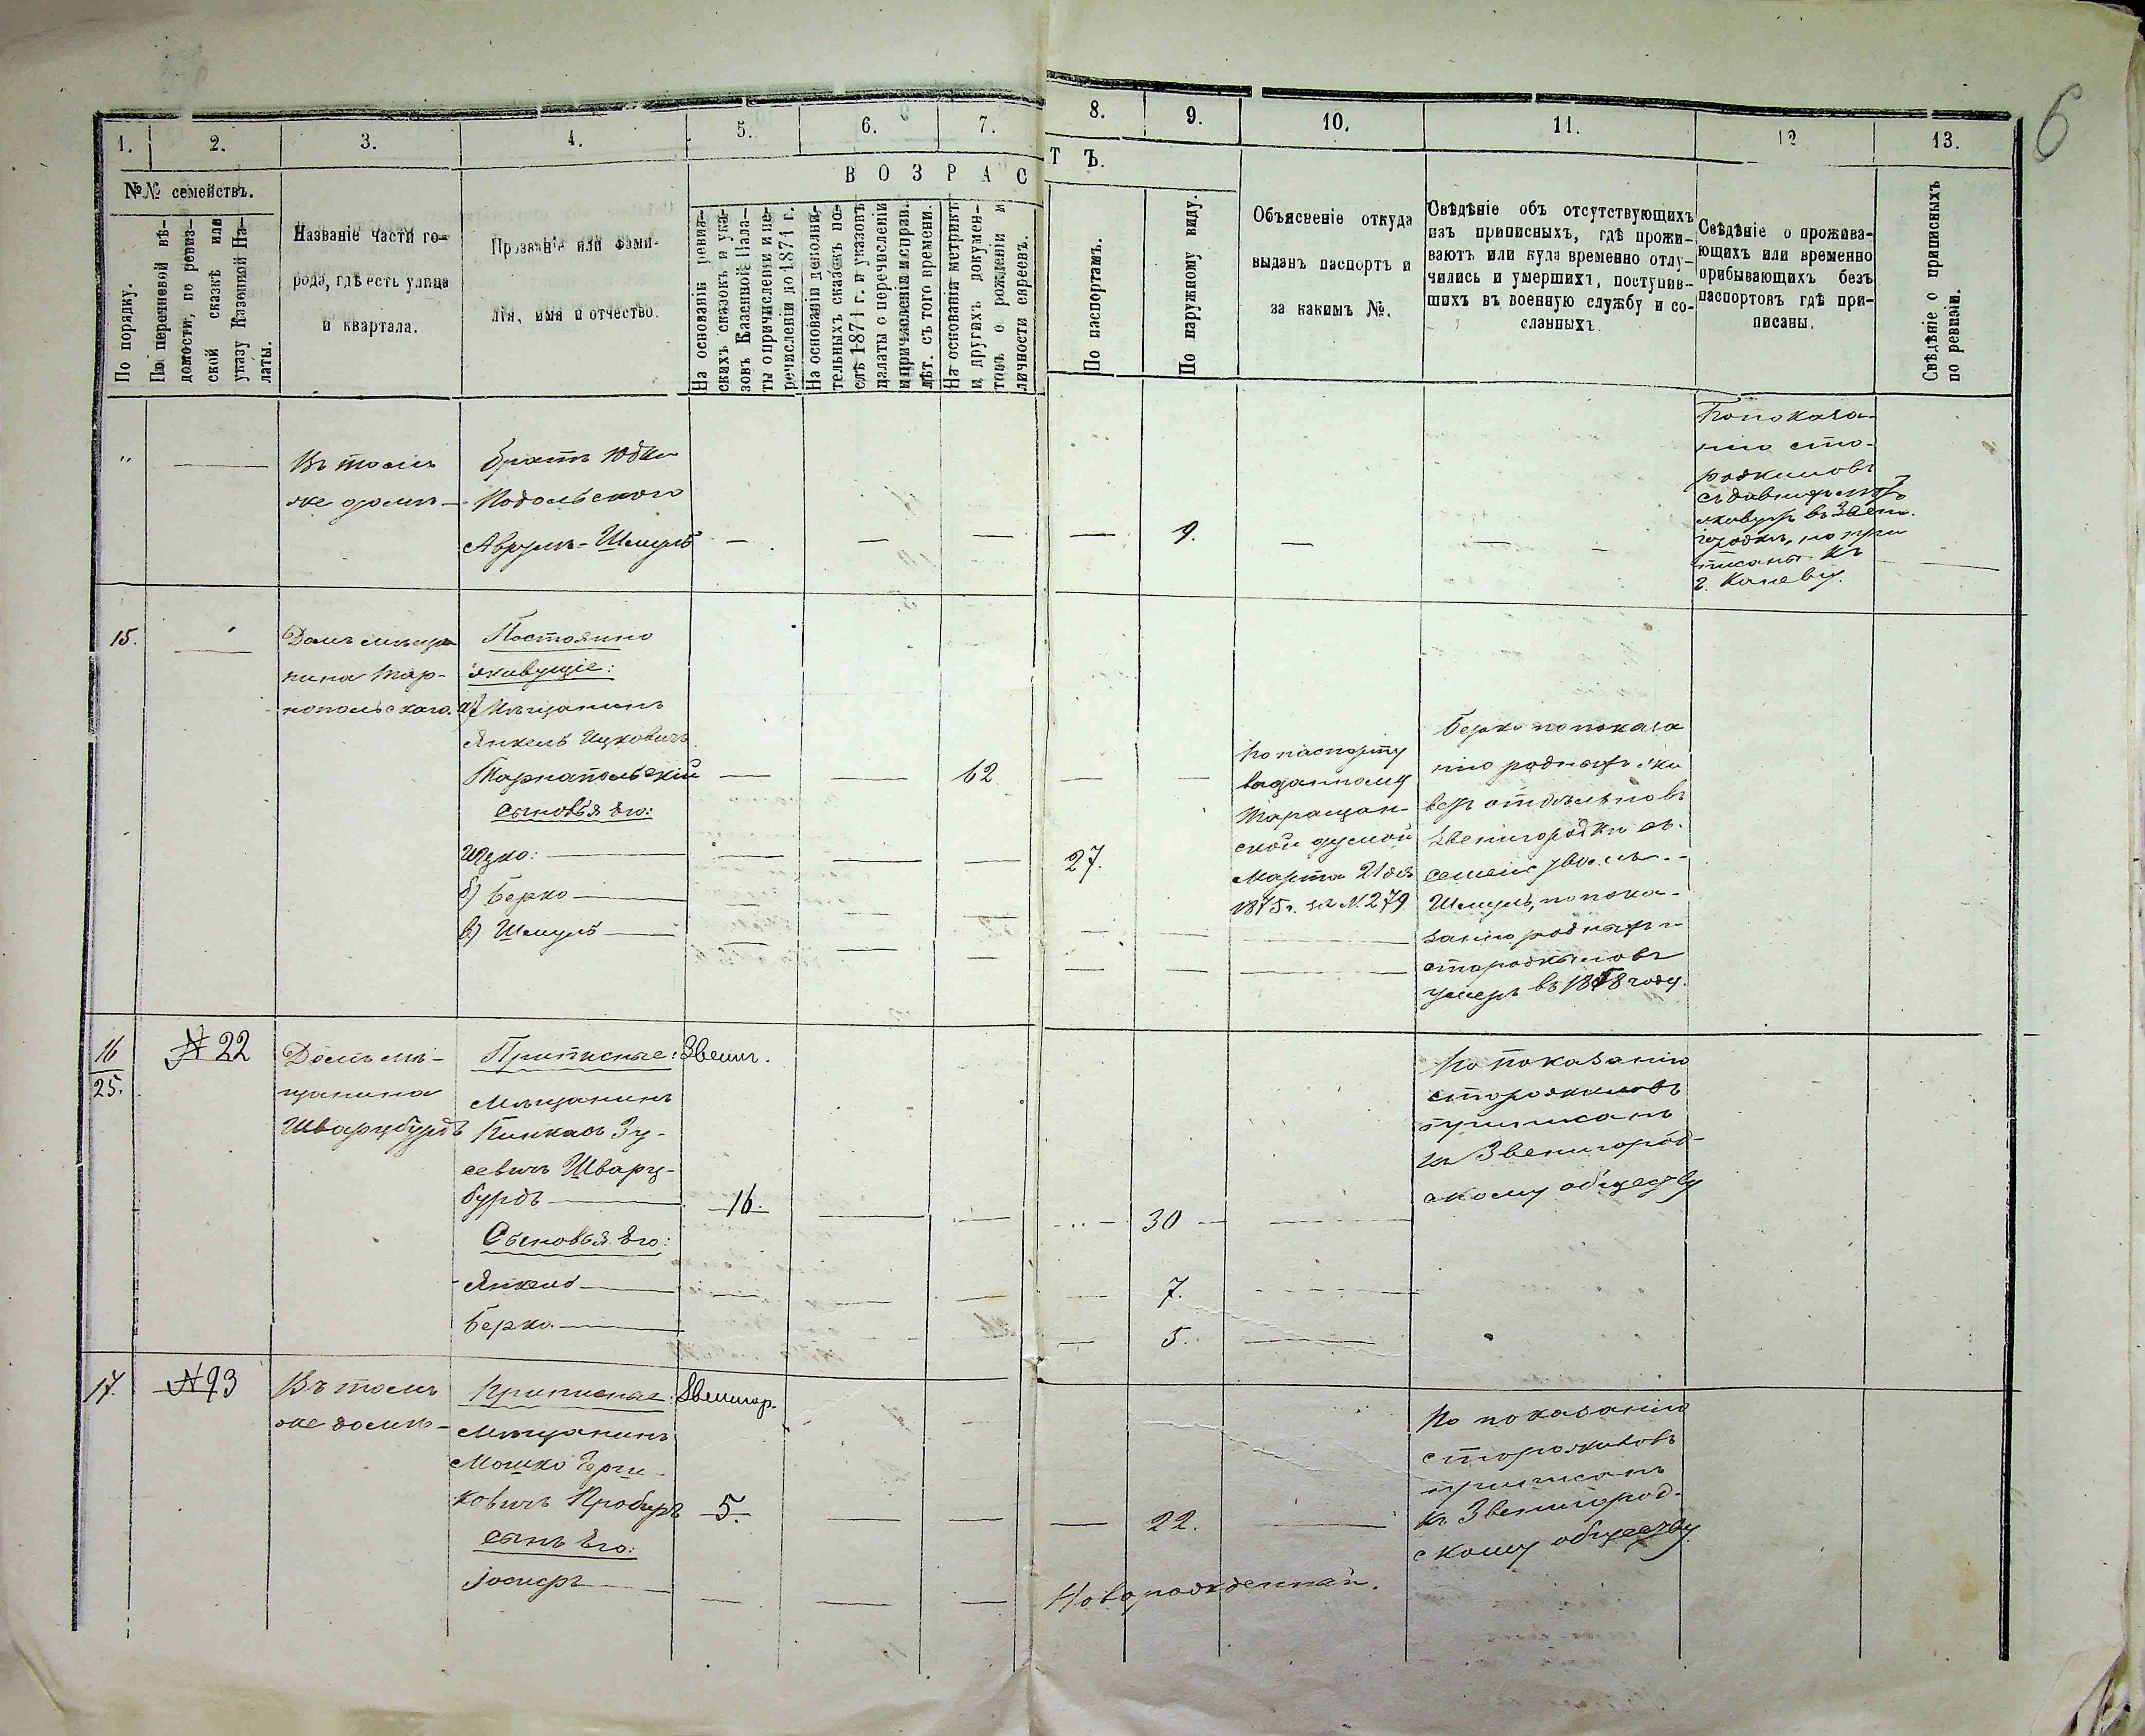 6
1. 2. 3. 4. 5. 6. 7. 8. 9. 10. 11. 12 13.
№№ семействъ.
ВОЗРАСТЪ.
По порядку.
По перечневой вѣ-
домости, по ревиз-
ской сказкѣ или
указу Казенной Па-
латы.
Названіе части го-
рода, гдѣ есть улица
и квартала.
Прозваніе или фами-
лія, имя и отчество.
На основаніи ревиз-
скихъ сказокъ и ука-
зовъ Казенной Пала-
ты о причисленіи и пе-
речисленіи до 1874 г.
На основаніи дополни-
тельныхъ сказокъ по-
слѣ 1874 г. и указовъ
палаты о перечисленіи
и причисленіи и исправ.
лѣт. съ того времени.
На основаніи метрикъ
и другихъ докумен-
товъ о рожденіи и
личности евреевъ.
По паспортамъ.
По наружному виду.
Объясненіе откуда
выданъ паспортъ и
за какимъ №.
Свѣдѣніе объ отсутствующихъ
изъ приписныхъ, гдѣ прожи-
ваютъ или куда временно отлу-
чились и умершихъ, поступив-
шихъ въ военную службу и со-
сланныхъ.
Свѣдѣніе о прожива-
ющихъ или временно
прибывающихъ безъ
паспортовъ гдѣ при-
писаны.
Свѣдѣніе о приписныхъ
по ревизіи.
"
Въ томъ
же домѣ
братъ Юдки
Подольскаго
Аврумъ-Шмуль
9.
По показа-
нію ста-
рожиловъ
съ давнихъ
живутъ въ Звени-
городкѣ, но при
писаны къ
г. Каневу.
15.
Домъ мѣща
нина Тар-
нопольскаго.
Постоянно
живущіе:
а) Мѣщанинъ
Янкель Ицковичъ
Тарнапольскій
62
сыновья его:
Ицко:
27.
б) Берко
в) Шмуль
По паспорту
выданному
Таращан-
ской думой
Марта 21 дня
1875 г. за № 279
Берко по показа
нію родныхъ жи
ветъ отдѣльно въ
Звенигородкѣ съ
семейст
Шмуль, по пока-
занію родныхъ и
старожиловъ
умеръ въ 1858 году.
16
25.
№ 22
Домъ мѣ-
щанина
Шварцбурдъ
Приписные:
Звениг.
Мѣщанинъ
Пинкасъ Зу-
севичъ Шварц-
бурдъ
16.
30
Сыновья его:
Янкель
7.
Берко
5.
По показанію
старожиловъ
приписанъ
къ Звенигород-
скому обществу
17.
№ 93
Въ томъ
же домѣ
Приписные:
Звенигор.
Мѣщанинъ
Мошко Герш-
ковичъ Пробиръ
5.
22.
сынъ его:
Іосифъ
Новорожденный.
По показанію
старожиловъ
приписанъ
къ Звенигород-
скому обществу.